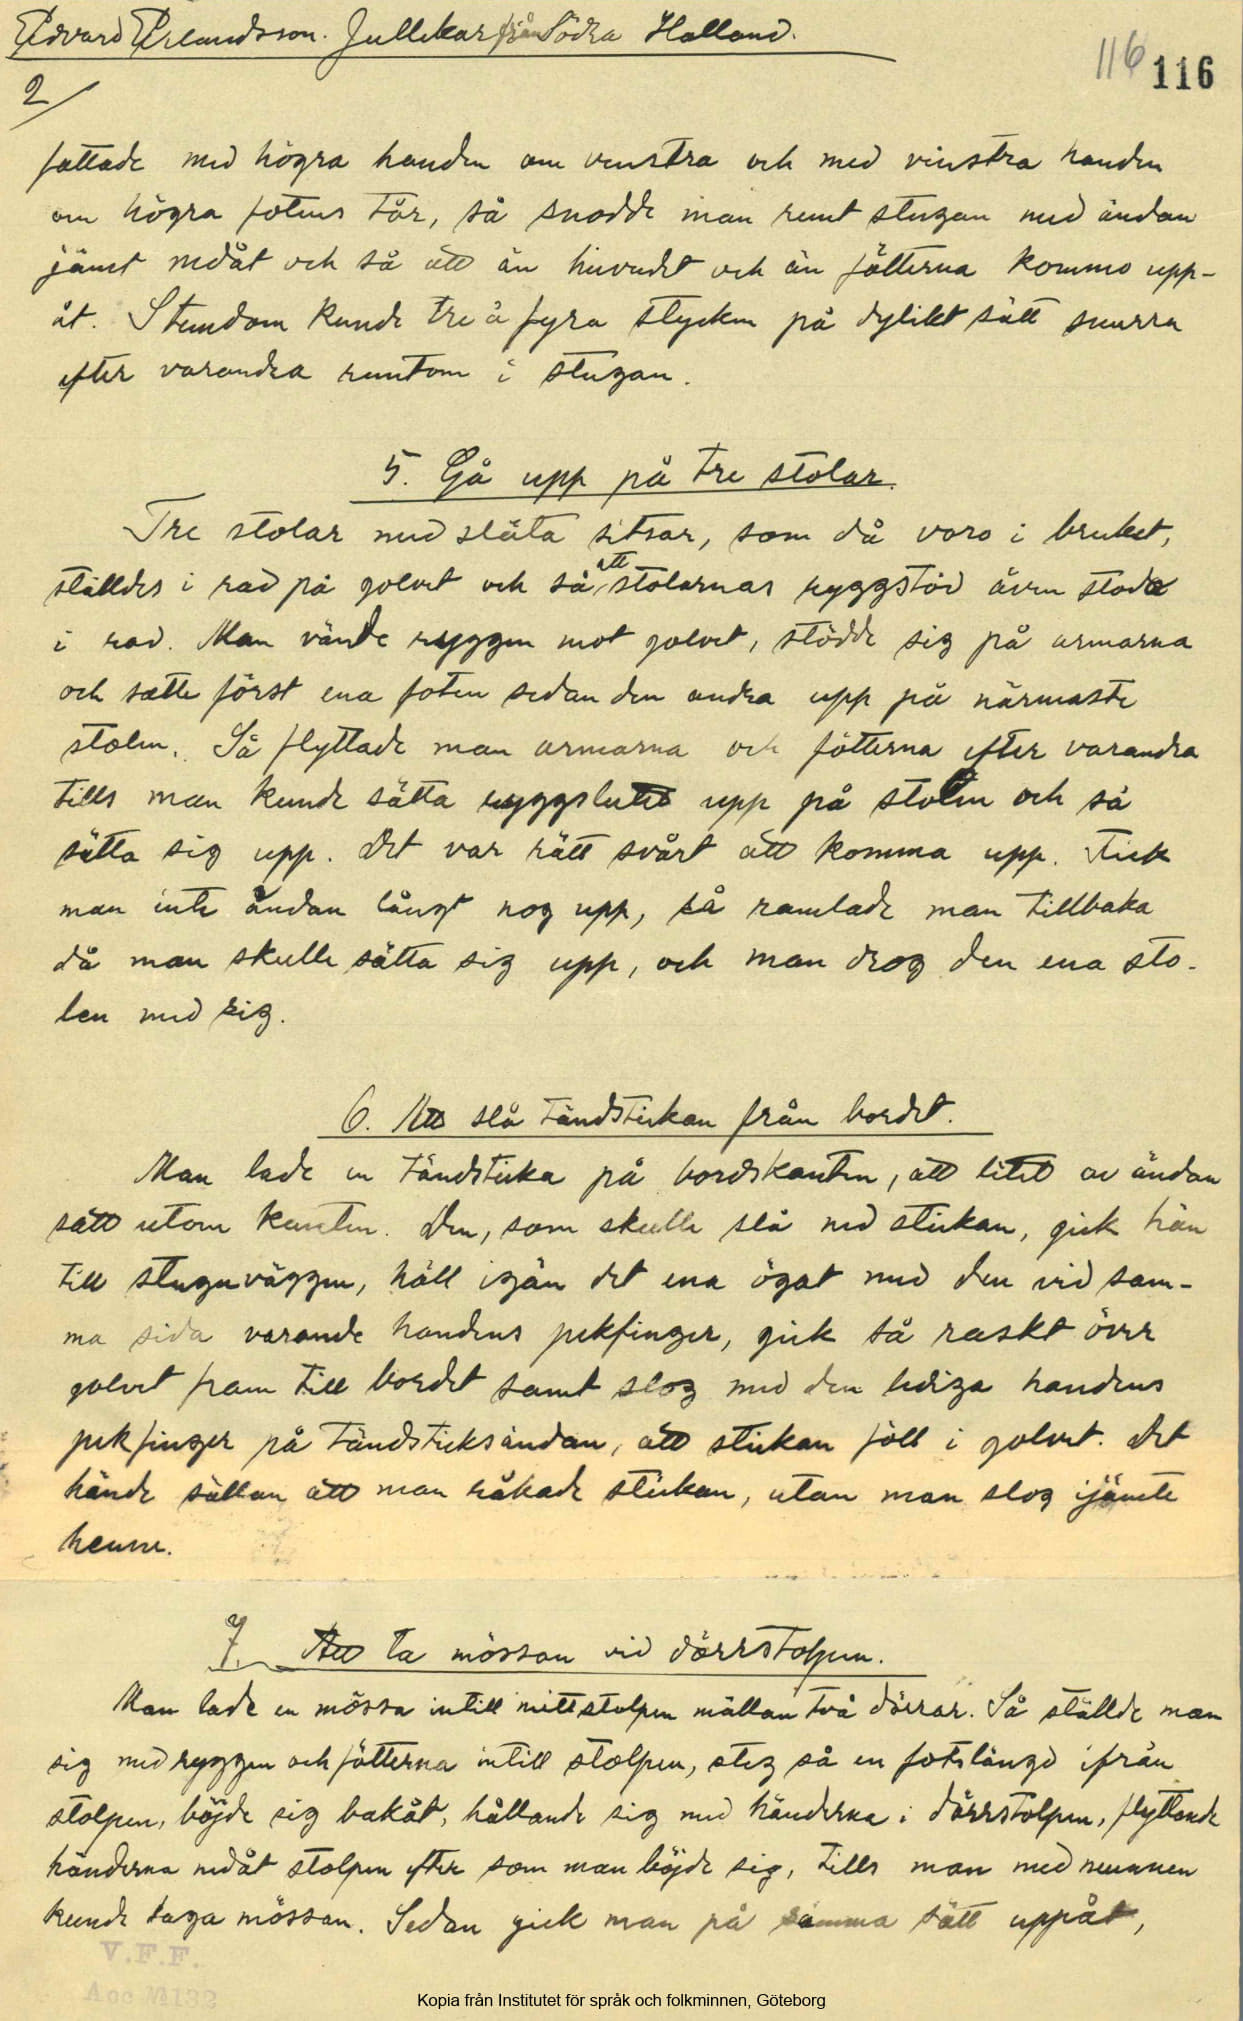 Edvard Erlandsson. Jullekar från Södra Halland.
116 116
2/
fattade med högra handen om venstra och med vinstra handen
om högra fotens tår, så snodde man runt stugan med ändan
jämt nedåt och så att än huvudet och än fötterna kommo upp-
åt. Stundom kunde tre à fyra stycken på dylikt sätt snurra
efter varandra runtom i stugan.
5. Gå upp på tre stolar.
Tre stolar med släta sitsar, som då voro i bruket,
ställdes i rad på golvet och så att stolarnas ryggstöd även stodo
i rad. Man vände ryggen mot golvet, stödde sig på armarna
och satte först ena foten sedan den andra upp på närmaste
stolen. Så flyttade man armarna och fötterna efter varandra
tills man kunde sätta ryggslutet upp på stolen och så
sätta sig upp. Det var rätt svårt att komma upp. Fick
man inte ändan långt nog upp, så ramlade man tillbaka
då man skulle sätta sig upp, och man drog den ena sto-
len med sig.
6. Att slå tändstickan från bordet.
Man lade en tändsticka på bordskanten, att litet av ändan
satt utom kanten. Den, som skulle slå ned stickan, gick hän
till stuguväggen, höll igän det ena ögat med den vid sam-
ma sida varande handens pekfinger, gick så raskt över
golvet fram till bordet samt slog med den lediga handens
pekfinger på tändsticksändan, att stickan föll i golvet. Det
hände sällan att man råkade stickan, utan man slog ijämte
henne.
7. Att ta mössan vid dörrstolpen.
Man lade en mössa intill mittstolpen mällan två dörrar. Så ställde man
sig med ryggen och fötterna intill stolpen, steg så en fotslängd ifrån
stolpen, böjde sig bakåt, hållande sig med händerna i dörrstolpen, flyttande
händerna nedåt stolpen efter som man böjde sig, tills man med munnen
kunde taga mössan. Sedan gick man på samma sätt uppåt,
V.F.F.
Acc M132
Kopia från Institutet för språk och folkminnen, Göteborg